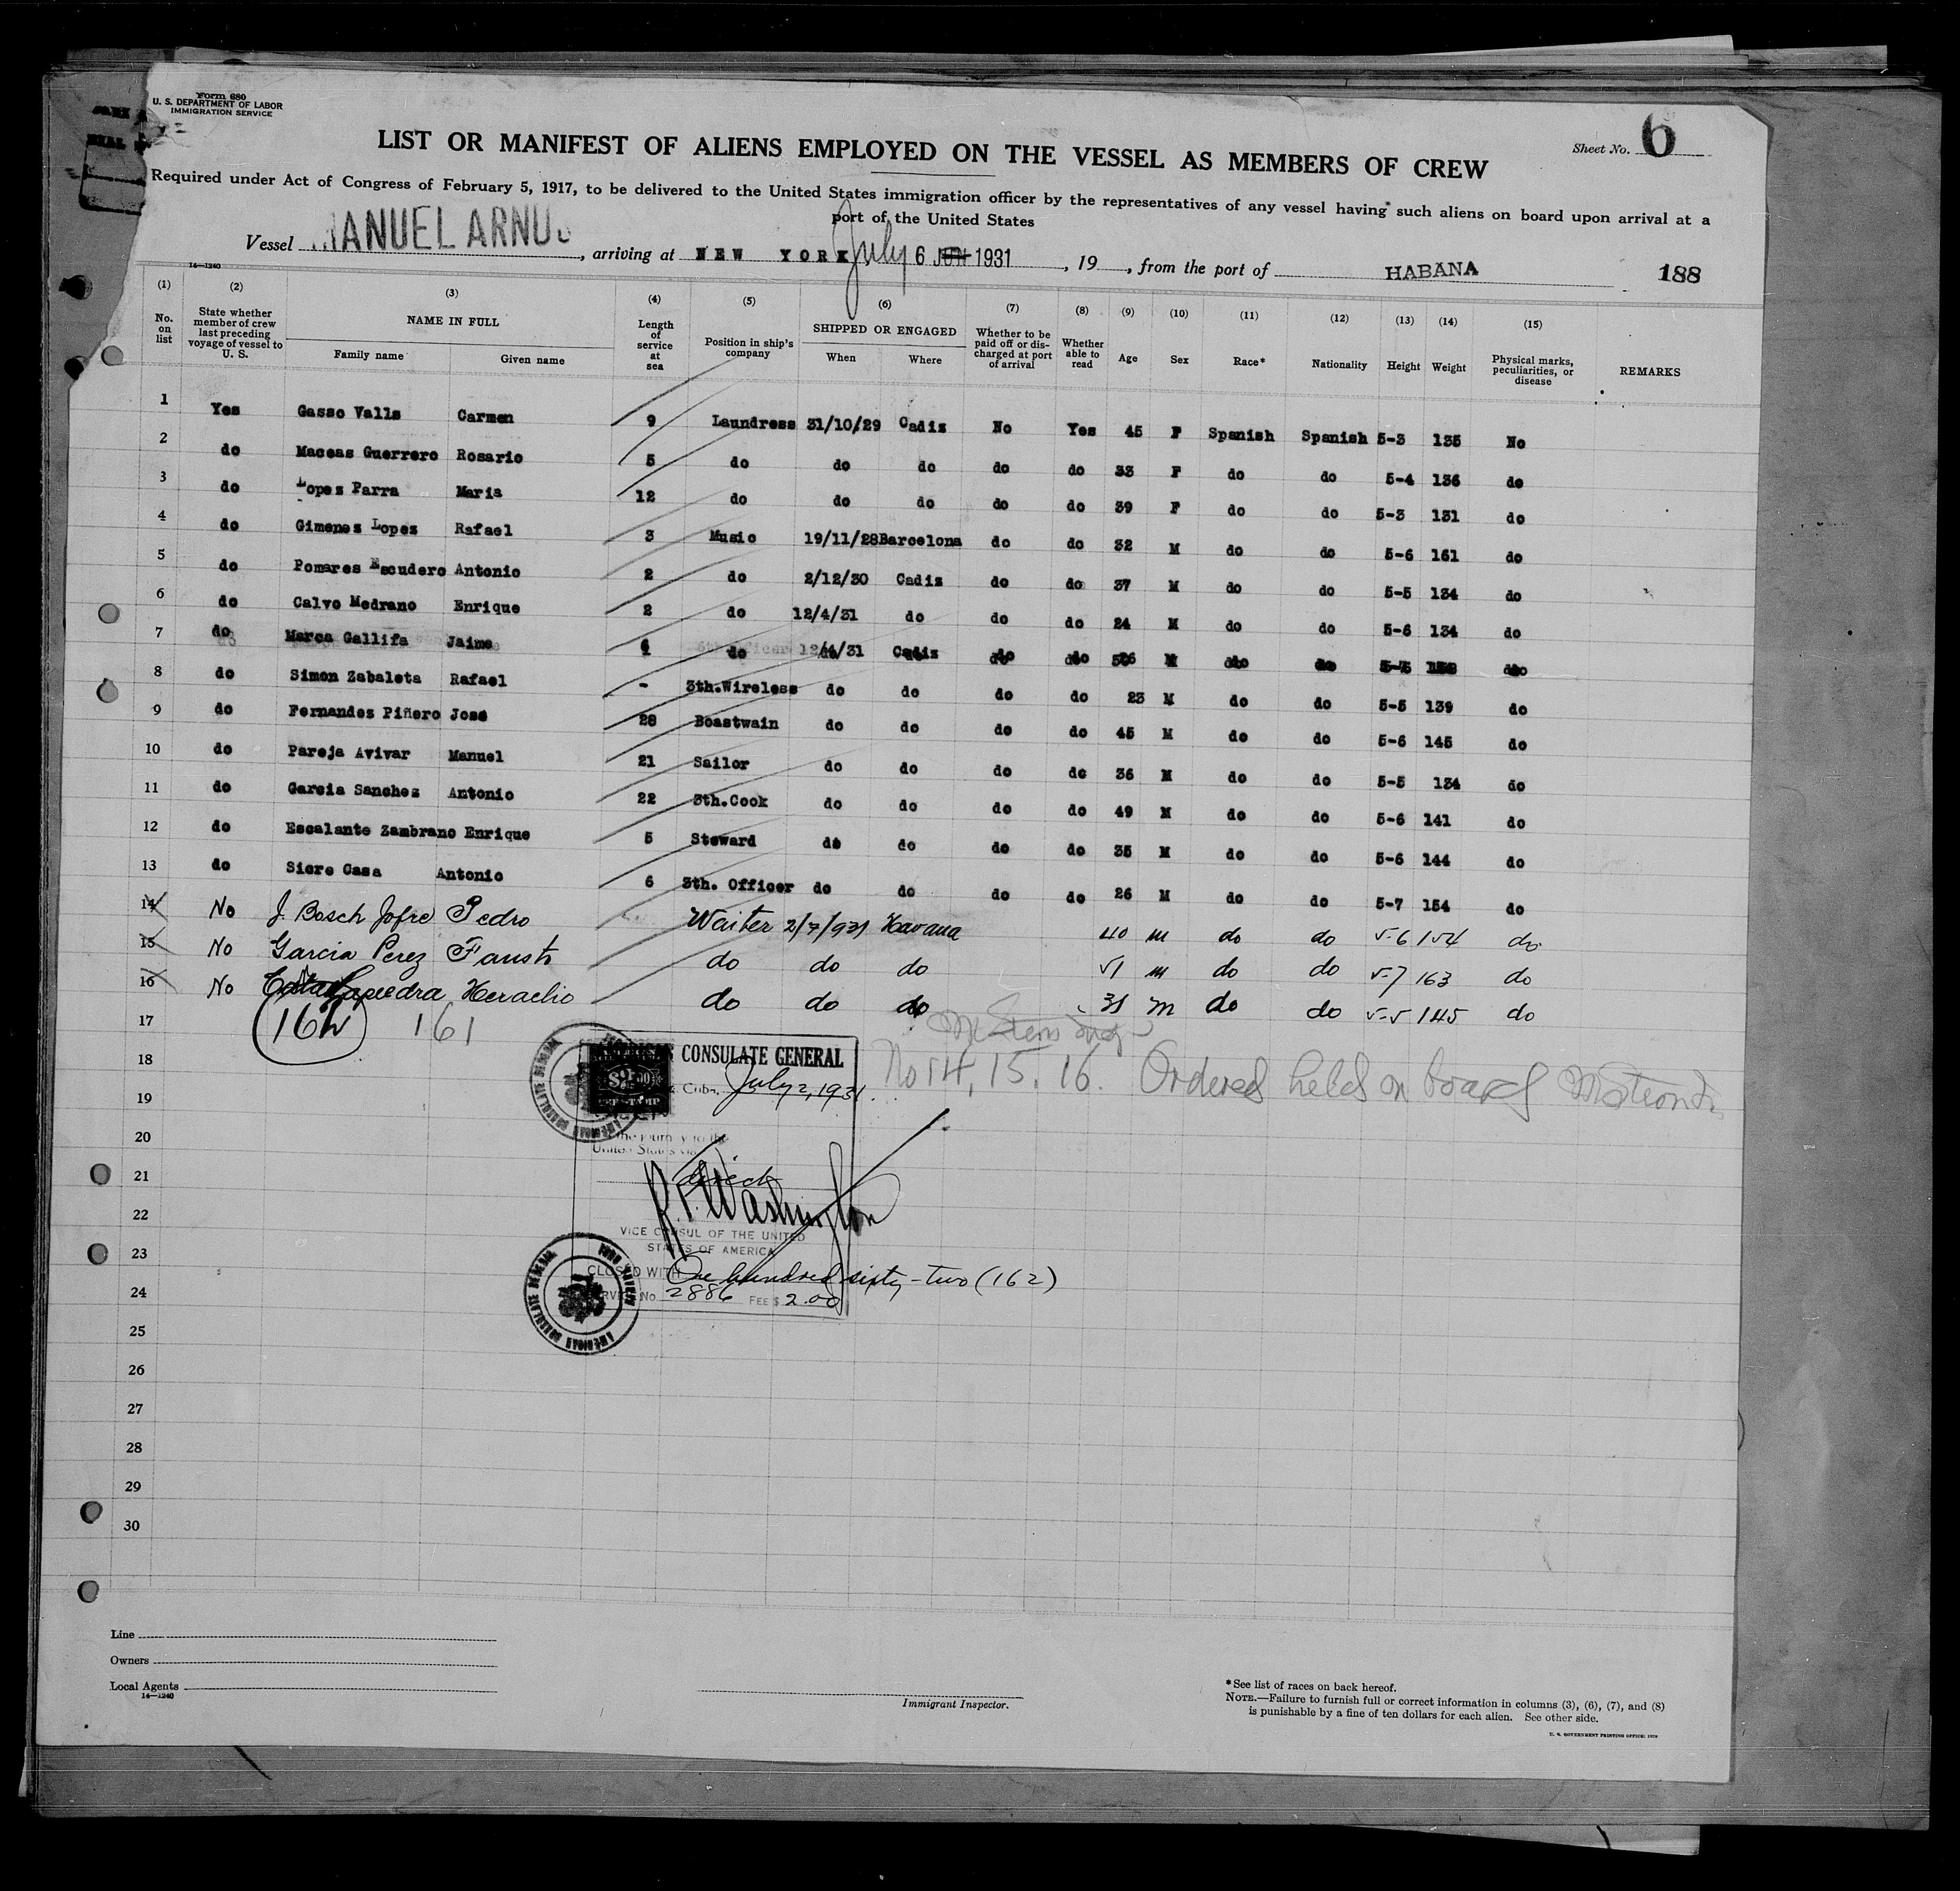 Form 680
U. S. DEPARTMENT OF LABOR
IMMIGRATION SERVICE
Sheet No. 6
LIST OR MANIFEST OF ALIENS EMPLOYED ON THE VESSEL AS MEMBERS OF CREW
Required under Act of Congress of February 5, 1917, to be delivered to the United States immigration officer by the representatives of any vessel having such aliens on board upon arrival at a
port of the United States
Vessel MANUEL ARNUS, arriving at NEW YORK July 6 JUN 1931, 19 , from the port of HABANA 188
14—1240
(1) (2) (3) (4) (5) (6) (7) (8) (9) (10) (11) (12) (13) (14) (15)
No. on list
State whether member of crew last preceding voyage of vessel to U. S.
NAME IN FULL
Family name Given name
Length of service at sea
Position in ship's company
SHIPPED OR ENGAGED
When Where
Whether to be paid off or discharged at port of arrival
Whether able to read
Age Sex Race* Nationality Height Weight
Physical marks, peculiarities, or disease
REMARKS
1 Yes Gasso Valls Carmen 9 Laundress 31/10/29 Cadiz No Yes 45 F Spanish Spanish 5-3 135 No
2 do Maceas Guerrero Rosario 5 do do do do do 33 F do do 5-4 136 do
3 do Lopez Parra Maria 12 do do do do do 39 F do do 5-3 131 do
4 do Gimenes Lopez Rafael 3 Music 19/11/28 Barcelona do do 32 M do do 5-6 161 do
5 do Pomares Escudero Antonio 2 do 2/12/30 Cadiz do do 37 M do do 5-5 134 do
6 do Calvo Medrano Enrique 2 do 12/4/31 do do do 24 M do do 5-6 134 do
7 do Marca Gallifa Jaime do 12/4/31 Cadiz do do M do do do
8 do Simon Zabaleta Rafael - 3th.Wireless do do do do 23 M do do 5-5 139 do
9 do Fernandes Piñero José 28 Boastwain do do do do 45 M do do 5-6 145 do
10 do Pareja Avivar Manuel 21 Sailor do do do do 36 M do do 5-5 134 do
11 do Garcia Sanchez Antonio 22 3th.Cook do do do do 49 M do do 5-6 141 do
12 do Escalante Zambrano Enrique 5 Steward do do do do 35 M do do 5-6 144 do
13 do Siere Casa Antonio 6 3th. Officer do do do do 26 M do do 5-7 154 do
14 No J. Bosch Jofre Pedro Waiter 2/7/931 Havana 40 m do do 5-6 154 do
15 No Garcia Perez Fausto do do do 51 m do do 5-7 163 do
16 No Heraclio do do do 31 m do do 5-5 145 do
17
162 161
18
AMERICAN CONSULATE GENERAL
No 14, 15, 16. Ordered held on board
Cuba, July 2, 1931.
19
20
the journey to the
United States via
21
direct
22
Washington
VICE CONSUL OF THE UNITED
STATES OF AMERICA
23
CLOSED WITH One hundred sixty-two (162)
24
SERVICE No. 2886 FEE $ 2.00
AMERICAN CONSULATE GENERAL
25
26
27
28
29
30
Line
Owners
Local Agents
14—1240
Immigrant Inspector.
*See list of races on back hereof.
NOTE.—Failure to furnish full or correct information in columns (3), (6), (7), and (8)
is punishable by a fine of ten dollars for each alien. See other side.
U. S. GOVERNMENT PRINTING OFFICE: 1929